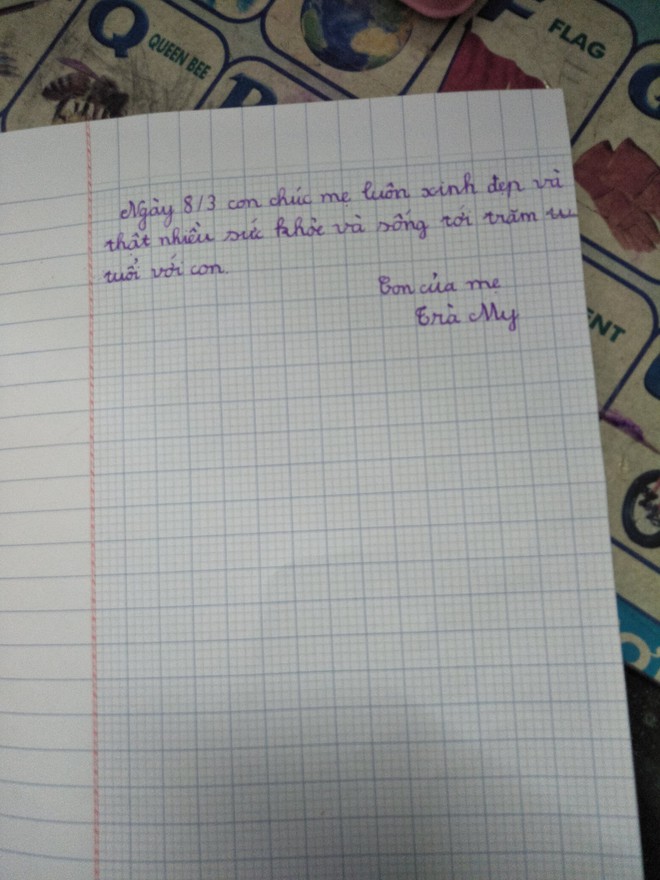 Q QUEEN BEE
FLAG
Ngày 8/3 con chúc mẹ luôn xinh đẹp và
thật nhiều sức khỏe và sống tới trăm tu
tuổi với con.
Con của mẹ
Trà My
ENT